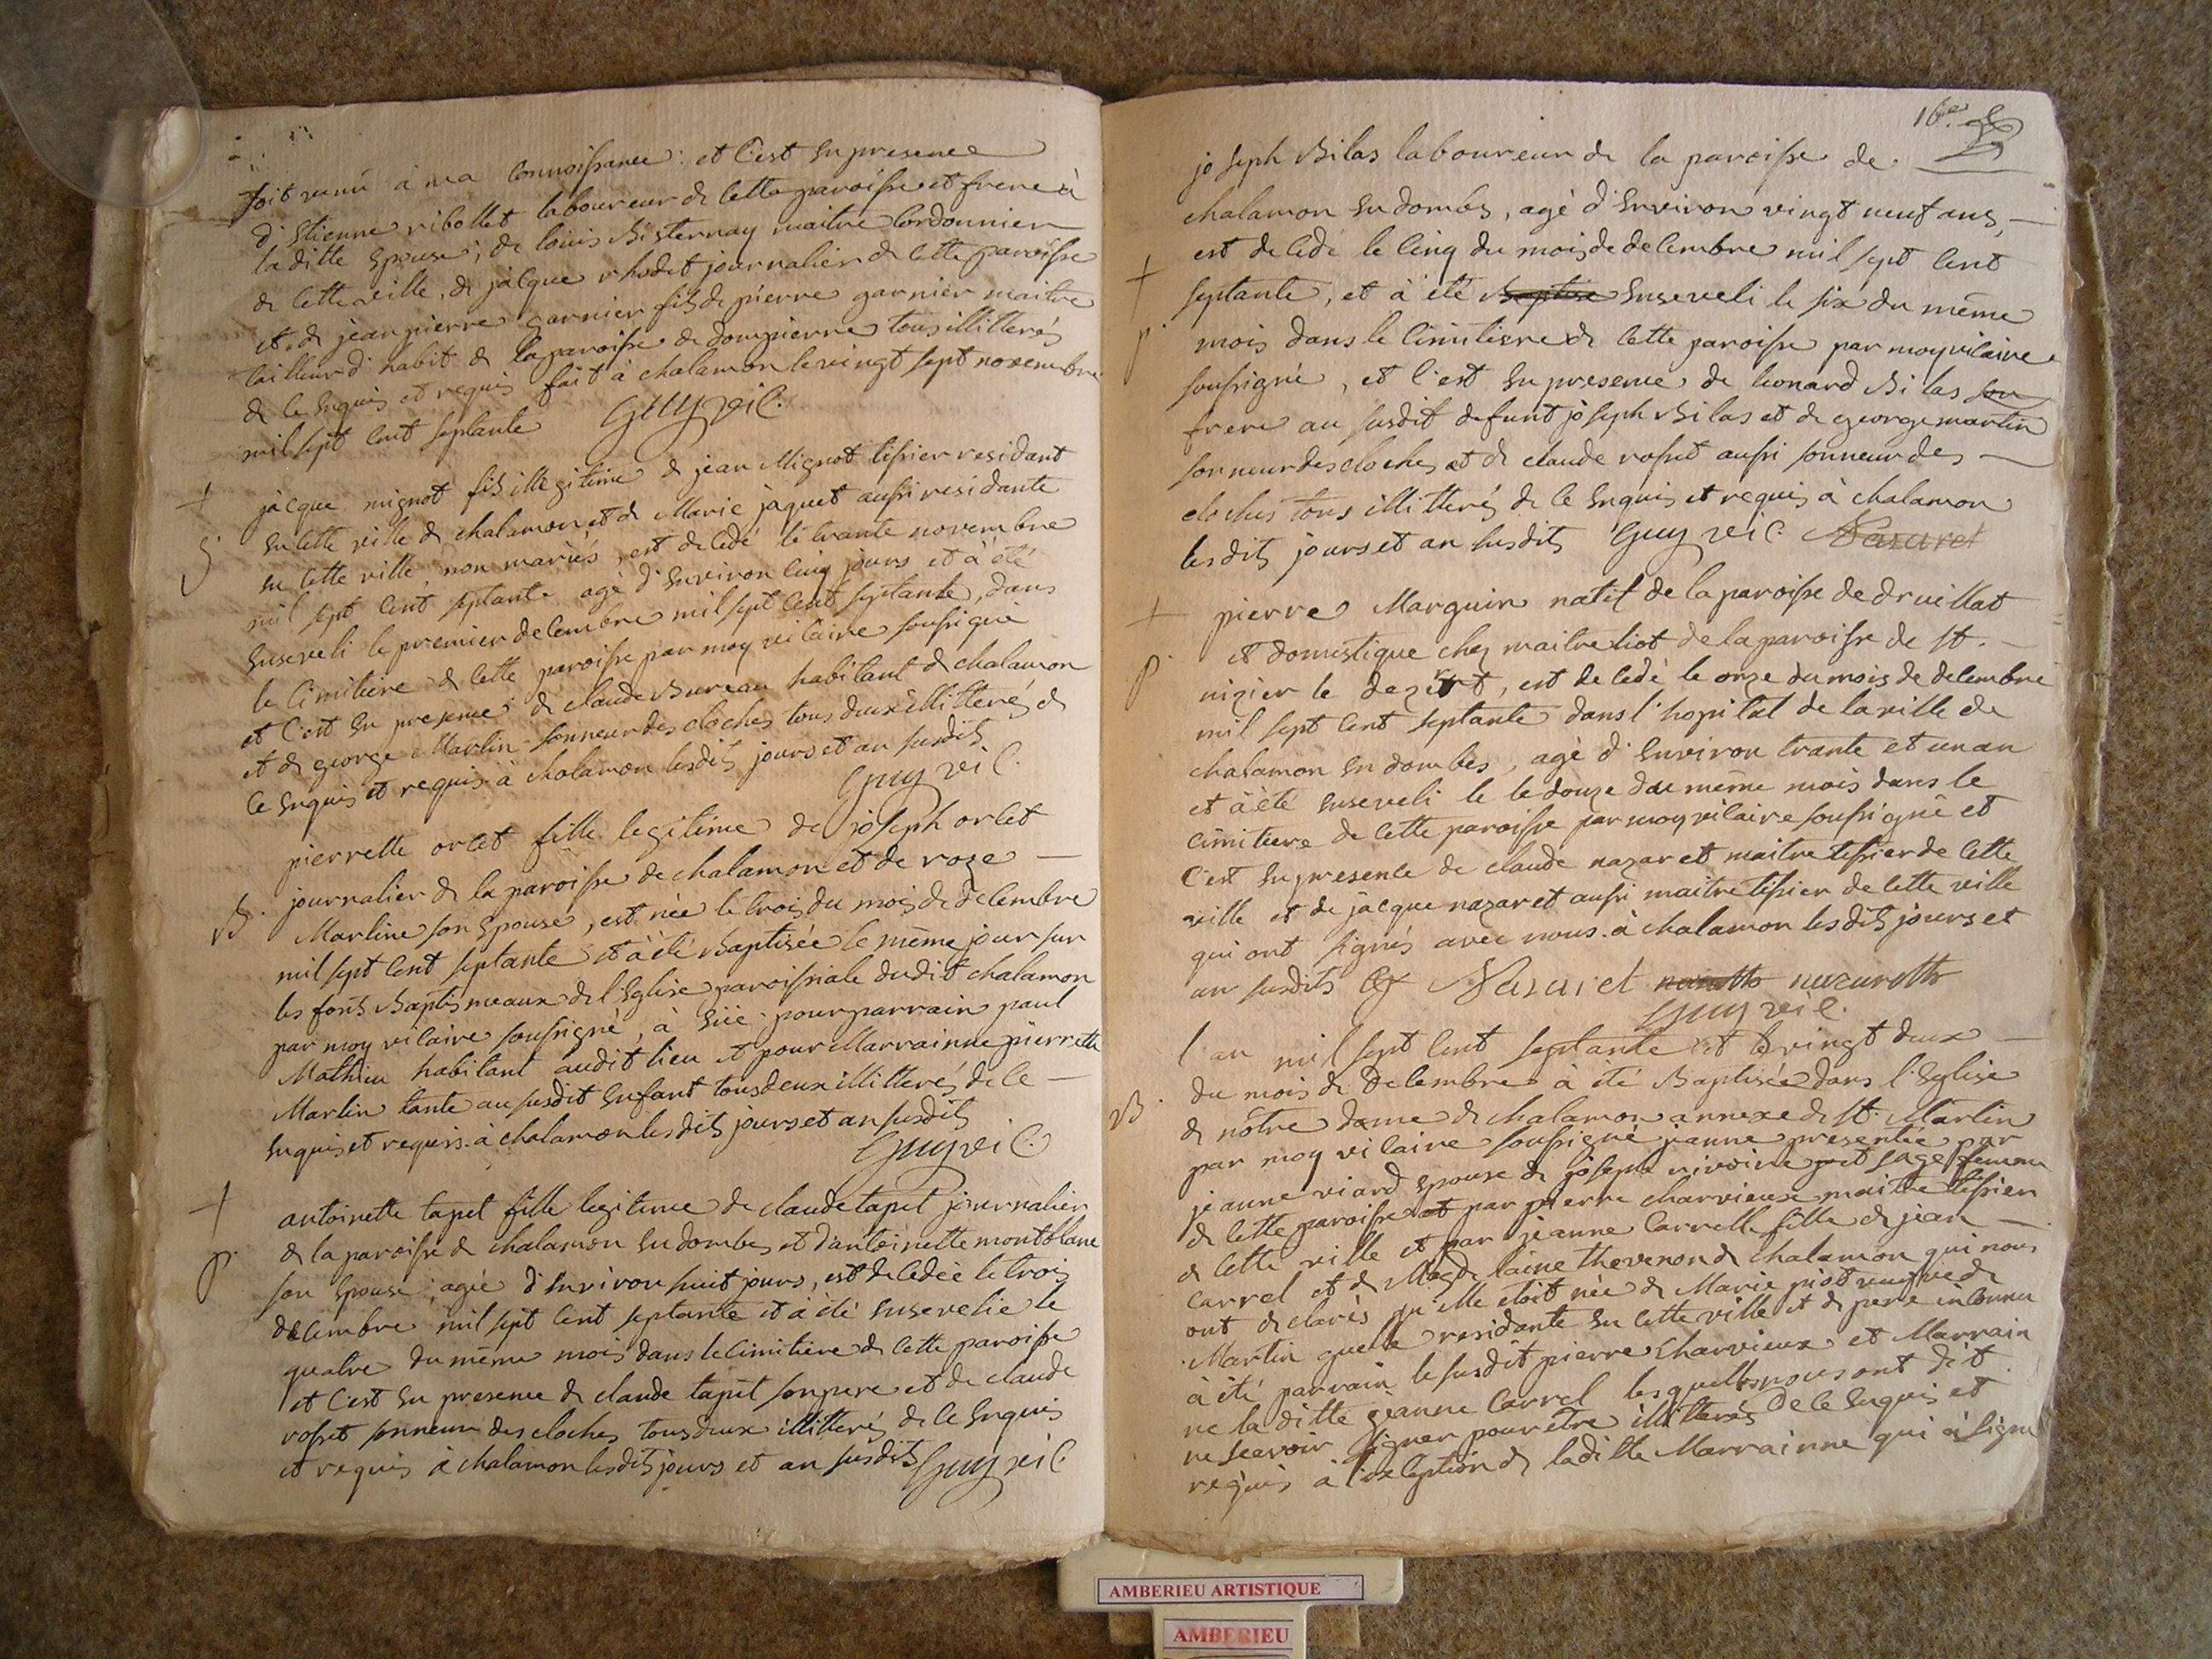 soit venu à ma connoissance : et c'est en presence
d'etienne ribollet laboureur de cette paroisse et frere à
la ditte epouse, de louis bisternay maitre cordonnier
de cette ville, de jacque rhodet journalier de cette paroisse
et de jean pierre garnier fils de pierre garnier maitre
tailleur d'habit de la paroisse de dompierre tous illitterés
de ce enquis et requis fait à chalamon le vingt sept novembre
mil sept cent septante Guy vic.
+ jacque mignot fils illegitime de jean Mignot tissier residant
en cette ville de chalamon et de Marie jaquet aussi residante
en cette ville, non mariés, est decedé le trante novembre
mil sept cent septante agé d'environ cinq jours et à été
enseveli le premier decembre mil sept cent septante, dans
le cimitiere de cette paroisse par moy vicaire soussigné
et c'est en presence de claude Bureau habitant de chalamon
et de george Martin sonneur des cloches tous deux illitterés de
ce enquis et requis à chalamon lesdits jours et an susdits
Guy vic.
pierrette orcet fille legitime de joseph orcet
B. journalier de la paroisse de chalamon et de roze —
Martine son epouse, est née le trois du mois de decembre
mil sept cent septante et à été Baptisée le même jour sur
les fonts Baptismeaux de l'Eglise paroissiale dudit chalamon
par moy vicaire soussigné, à eüe pour parrain paul
Mathieu habitant audit lieu et pour Marrainne pierrette
Martin tante au susdit enfant tous deux illitterés de ce —
enquis et requis à chalamon les dits jours et an susdits
Guy vic.
+ antoinette tapet fille legitime de claude tapet journalier
p. de la paroisse de chalamon en dombes et d'antoinette montblanc
son epouse, agée d'environ huit jours, est decedée le trois
decembre mil sept cent septante et à été ensevelie le
quatre du même mois dans le cimitiere de cette paroisse
et c'est en presence de claude tapet son pere et de claude
rosset sonneur des cloches tous deux illitterés de ce enquis
et requis à chalamon lesdits jours et an susdits Guy vic.
16e
joseph Bilas laboureur de la paroisse de
chalamon en dombes, agé d'environ vingt neuf ans, —
est decedé le cinq du mois de decembre mil sept cent
+ septante, et à été Baptisé enseveli le six du même
p. mois dans le cimitiere de cette paroisse par moy vicaire
soussigné, et c'est en presence de leonard Bilas son
frere au susdit defunt joseph Bilas et de george martin
sonneur des cloches et de claude rosset aussi sonneur des —
cloches tous illitterés de ce enquis et requis à chalamon
les dits jours et an susdits Guy vic. Nazaret
+ pierre Marguin natif de la paroisse de druillat
p. et domestique chez maitre liot de la paroisse de st. —
nizier le dezert, est decedé le onze du mois de decembre
mil sept cent septante dans l'hopital de la ville de
chalamon en dombes, agé d'environ trante et un an
et à été enseveli le le douze du même mois dans le
cimitiere de cette paroisse par moy vicaire soussigné et
c'est en presence de claude nazaret maitre tissier de cette
ville et de jacque nazaret aussi maitre tissier de cette ville
qui ont signés avec nous à chalamon les dits jours et
an susdits Nazaret nazaroth
Guy vic.
l'an mil sept cent septante et le vingt deux —
B. du mois de decembre à été Baptisée dans l'Eglise
de nôtre dame de chalamon annexe de st. Martin
par moy vicaire soussigné jeanne presentée par
jeanne viard epouse de joseph sage femme
de cette paroisse et par pierre charvieux maitre tissier
de cette ville et par jeanne Carrelle fille de jean —
Carrel et de Magdelaine thevenon de chalamon qui nous
ont declarés qu'elle etoit née de Marie piot veuve de
Martin residante en cette ville et de pere inconnu
à été parrain le susdit pierre Charvieux et Marrain
ne la ditte jeanne Carrel lesquelles nous ont dit
ne scavoir signer pour être illitterés de ce enquis et
requis à l'exception de laditte Marrainne qui à signé
AMBERIEU ARTISTIQUE
AMBERIEU